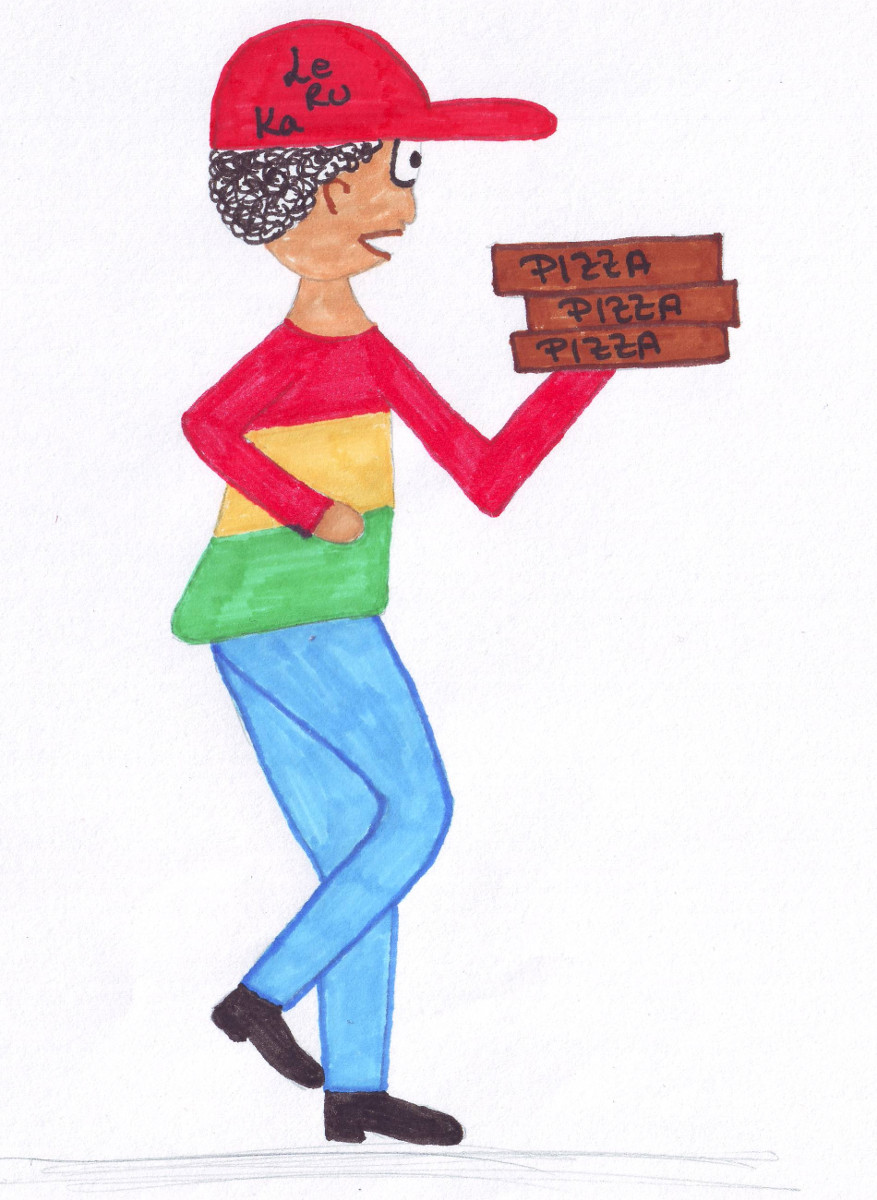 Le
Ru
Ka
PIZZA
PIZZA
PIZZA